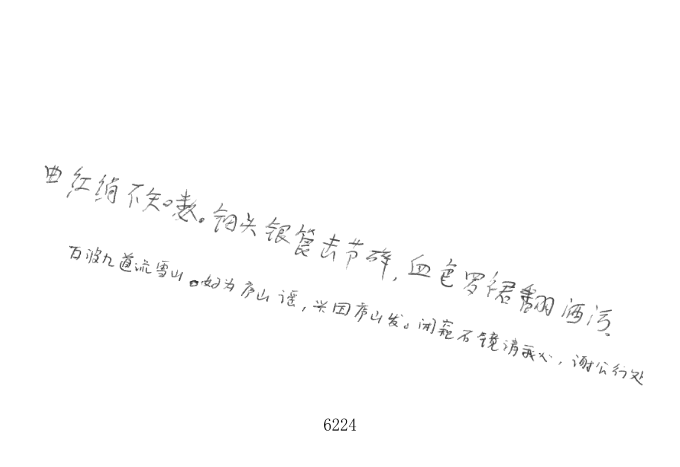 曲红绡不知数。钿头银篦击节碎,血色罗裙翻酒污。
百波九道流雪山。好为庐山谣,兴因庐山发。闲窥石镜清我心,谢公行处
6224